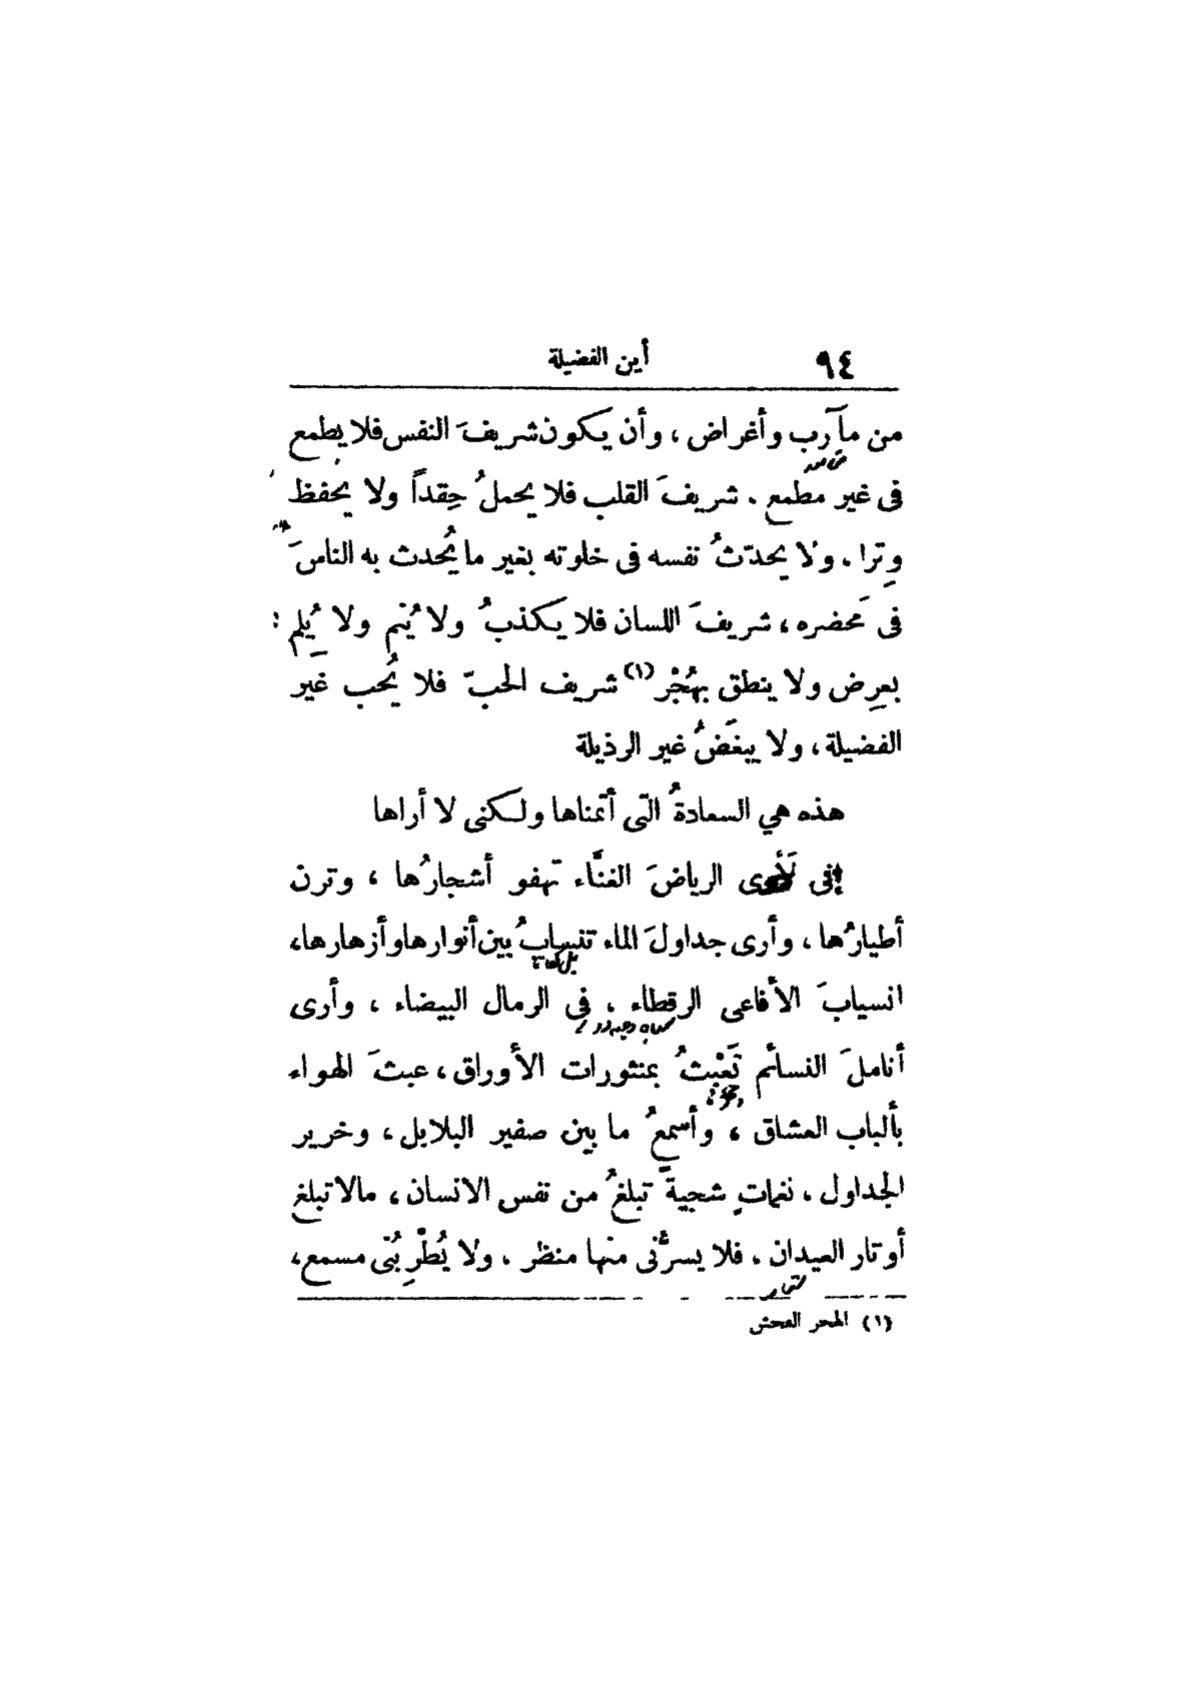 ٩٤ أين الفضيلة
من مآرب وأغراض ، وأن يكون شريفَ النفس فلا يطمع
فى غير مطمع . شريفَ القلب فلا يحملُ حِقداً ولا يحفظ
وِترا . ولا يحدّثُ نفسه فى خلوته بغير ما يُحدث به الناسَ
فى مَحضره ، شريفَ اللسان فلا يكذبُ ولا يُنم ولا يُلِم
بعرِض ولا ينطق بهُجْر (١) شريف الحبّ فلا يُحب غيرَ
الفضيلة ، ولا يبغَضُ غير الرذيلة
هذه هي السعادةُ التّى أتمناها ولكنى لا أراها
إنى لَأرى الرياضَ الغنَّاء تهفو أشجارُها ، وترن
أطيارُها ، وأرى جداولَ الماء تنسابُ بين أنوارها وأزهارها ،
انسيابَ الأفاعى الرقطاء ، في الرمال البيضاء ، وأرى
أناملَ النسأئم تَعْبثُ بمنثورات الأوراق ، عبثَ الهواء
بألباب العشاق ، وأسمعُ ما بين صفير البلابل ، وخرير
الجداول ، نغماتٍ شجيةً تبلغُ من نفس الانسان ، مالا تبلغ
أوتار العيدان . فلا يسرُّنى منها منظر . ولا يُطْرِبُنى مسمع ،
(١) الهجر الفحش